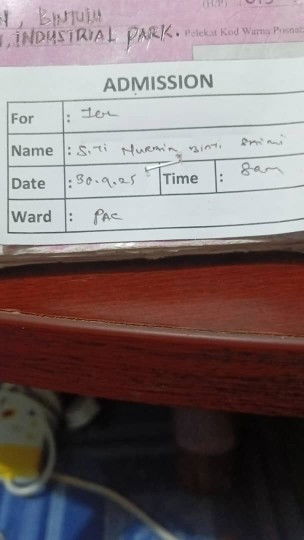 , BINTULU
, INDUSTRIAL PARK. Pelekat Kod Warna
ADMISSION
For :
Name : Siti Nurmin Binti
Date : 30.9.25 Time : 8am
Ward : PAC